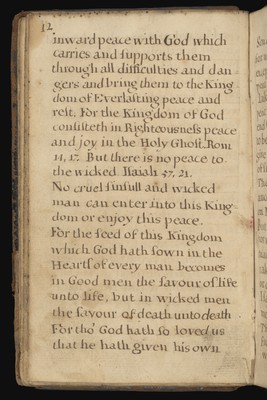 12
inward peace with God which
carries and ſupports them
through all difficulties and dan
gers and bring them to the King
dom of Everlaſting peace and
reſt. For the Kingdom of God
conſiſteth in Righteouſneſs peace
and joy in the Holy Ghoſt. Rom
14, 17. But there is no peace to
the wicked Isaiah 57, 21.
No cruel ſinfull and wicked
man can enter into this King
dom or enjoy this peace.
For the ſeed of this Kingdom
which God hath ſown in the
Hearts of every man becomes
in Good men the ſavour of life
unto life, but in wicked men
the ſavour of death unto death
For tho' God hath ſo loved us
that he hath given his own